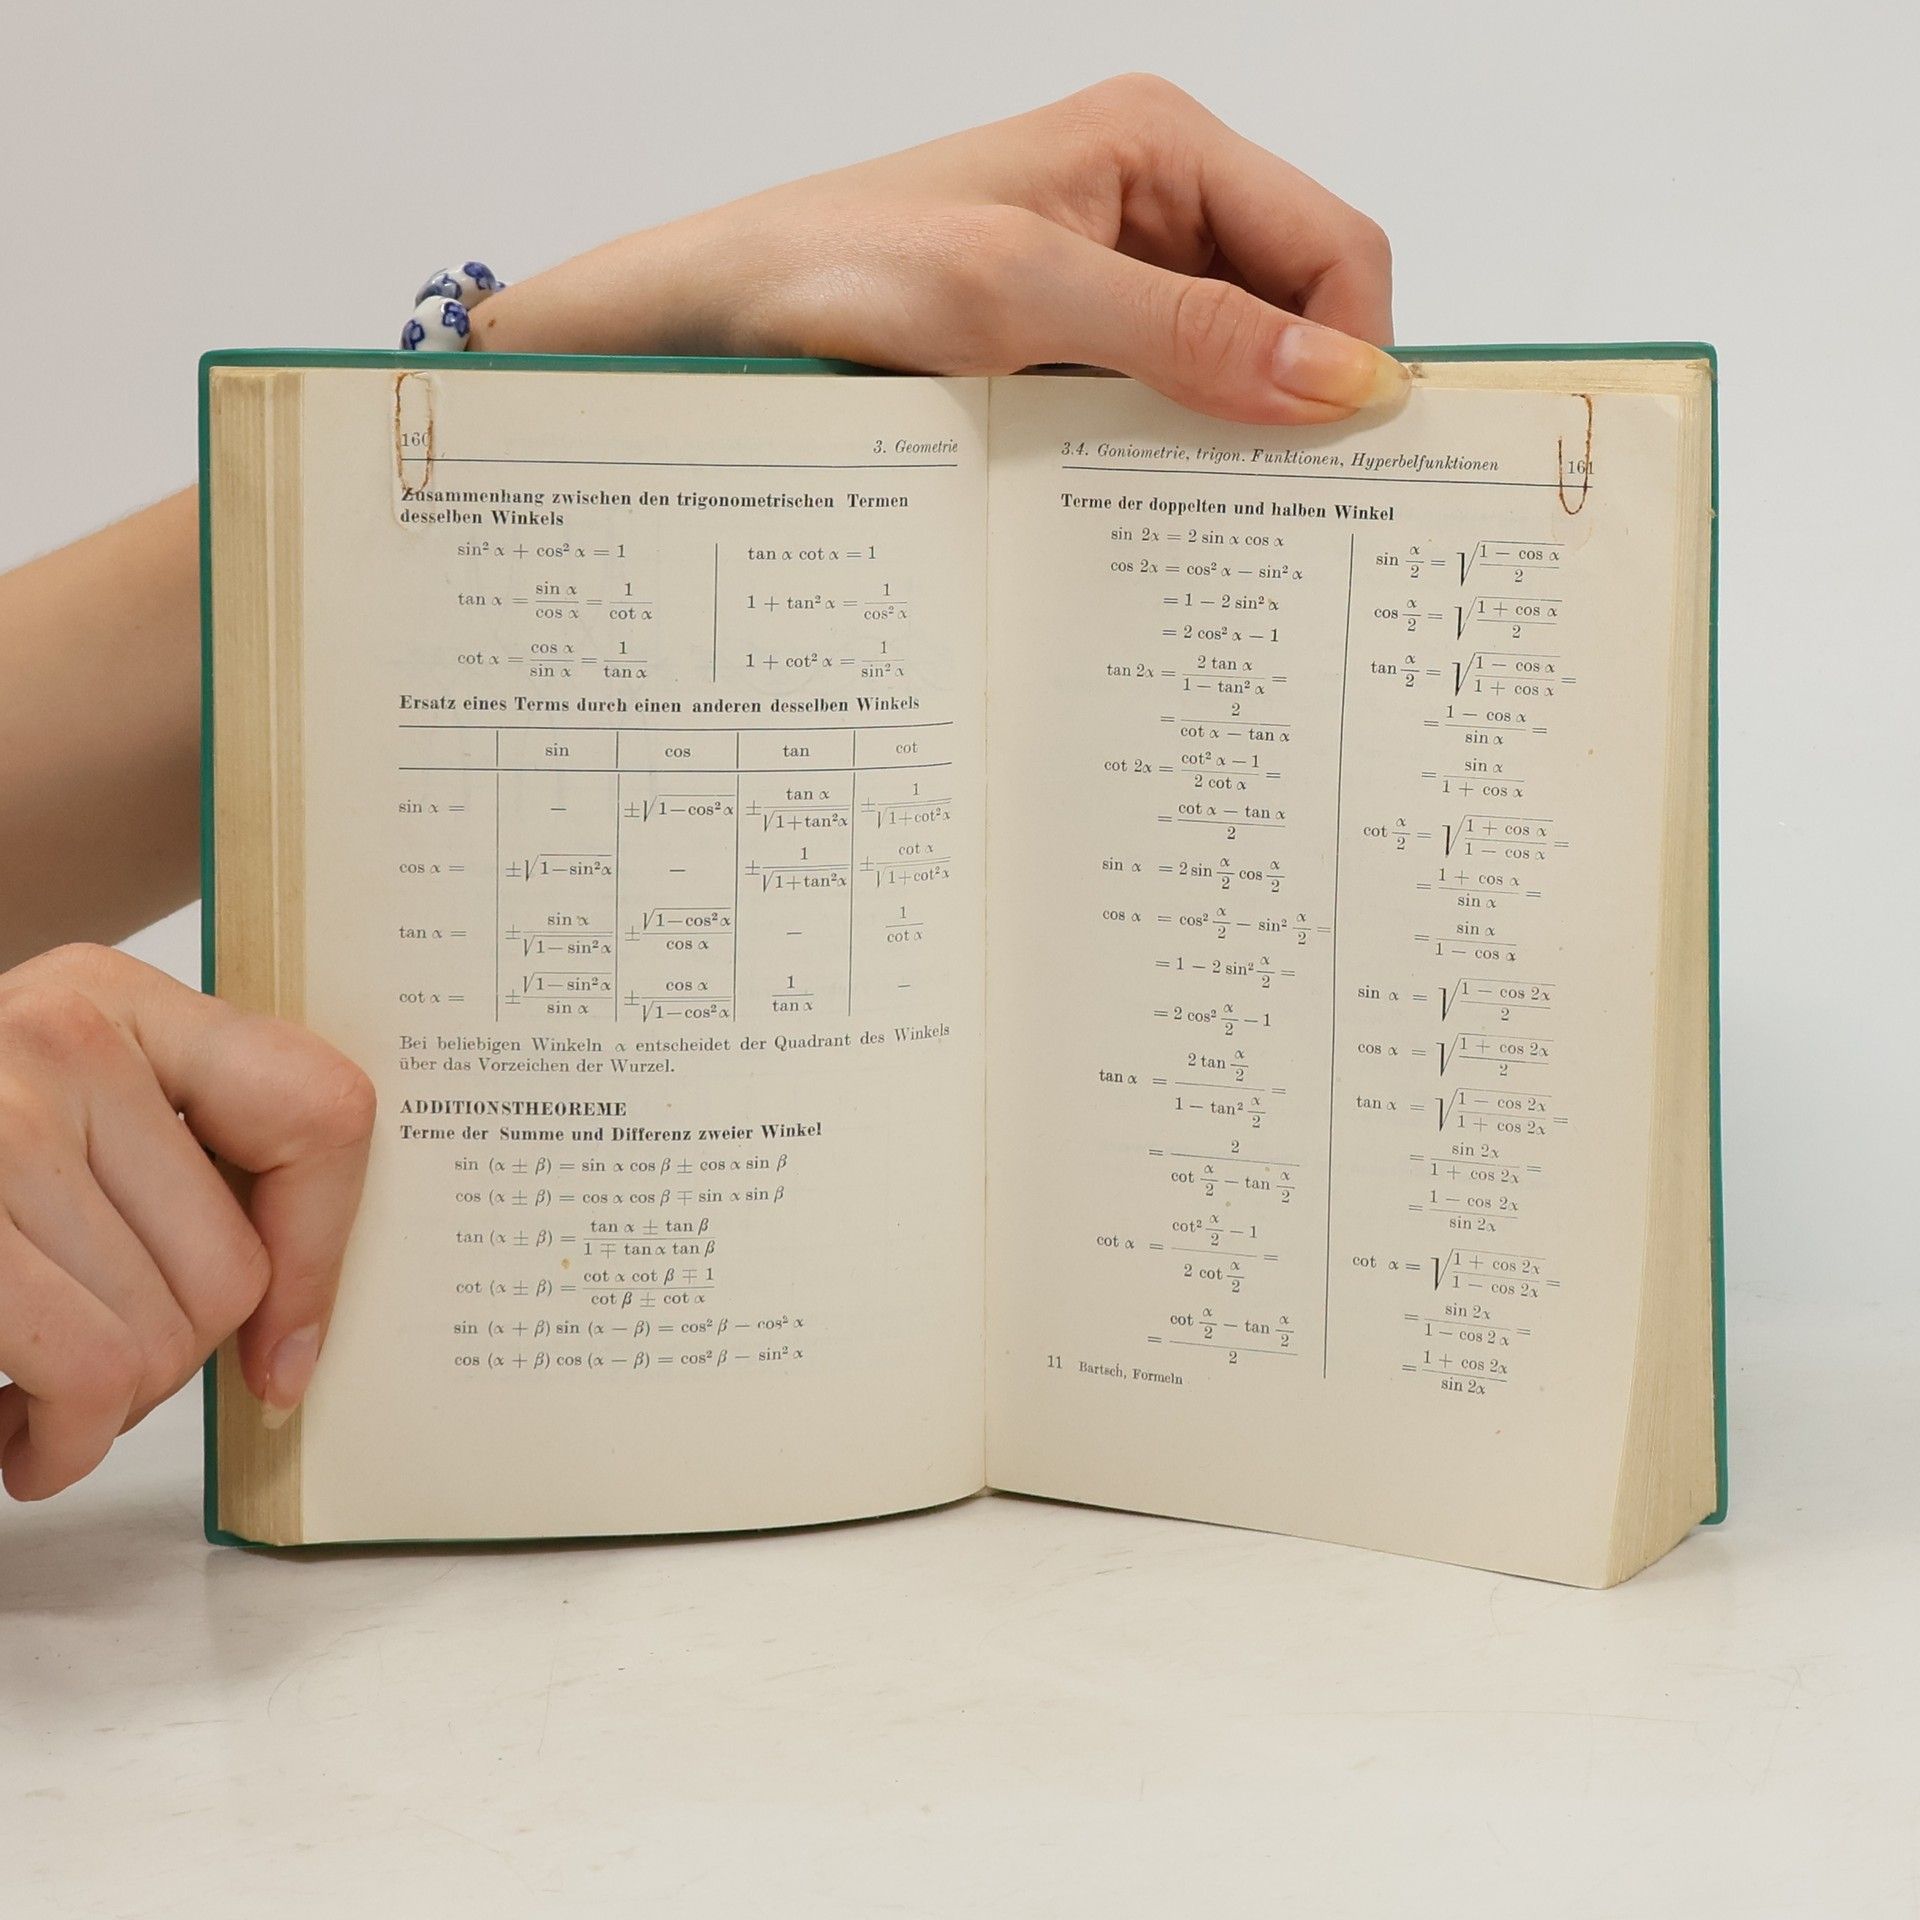 160 3. Geometrie
Zusammenhang zwischen den trigonometrischen Termen
desselben Winkels
sin² α + cos² α = 1
tan α = sin α / cos α = 1 / cot α
cot α = cos α / sin α = 1 / tan α
tan α cot α = 1
1 + tan² α = 1 / cos² α
1 + cot² α = 1 / sin² α
Ersatz eines Terms durch einen anderen desselben Winkels
sin cos tan cot
sin α = — ±√(1−cos² α) ± tan α / √(1+tan² α) ± 1 / √(1+cot² α)
cos α = ±√(1−sin² α) — ± 1 / √(1+tan² α) ± cot α / √(1+cot² α)
tan α = ± sin α / √(1−sin² α) ± √(1−cos² α) / cos α — 1 / cot α
cot α = ± √(1−sin² α) / sin α ± cos α / √(1−cos² α) 1 / tan α —
Bei beliebigen Winkeln α entscheidet der Quadrant des Winkels
über das Vorzeichen der Wurzel.
ADDITIONSTHEOREME
Terme der Summe und Differenz zweier Winkel
sin (α ± β) = sin α cos β ± cos α sin β
cos (α ± β) = cos α cos β ∓ sin α sin β
tan (α ± β) = (tan α ± tan β) / (1 ∓ tan α tan β)
cot (α ± β) = (cot α cot β ∓ 1) / (cot β ± cot α)
sin (α + β) sin (α − β) = cos² β − cos² α
cos (α + β) cos (α − β) = cos² β − sin² α
3.4. Goniometrie, trigon. Funktionen, Hyperbelfunktionen 161
Terme der doppelten und halben Winkel
sin 2α = 2 sin α cos α
cos 2α = cos² α − sin² α
= 1 − 2 sin² α
= 2 cos² α − 1
tan 2α = 2 tan α / (1 − tan² α) =
= 2 / (cot α − tan α)
cot 2α = (cot² α − 1) / (2 cot α) =
= (cot α − tan α) / 2
sin α = 2 sin α/2 cos α/2
cos α = cos² α/2 − sin² α/2 =
= 1 − 2 sin² α/2 =
= 2 cos² α/2 − 1
tan α = 2 tan α/2 / (1 − tan² α/2) =
= 2 / (cot α/2 − tan α/2)
cot α = (cot² α/2 − 1) / (2 cot α/2) =
= (cot α/2 − tan α/2) / 2
sin α/2 = √((1 − cos α) / 2)
cos α/2 = √((1 + cos α) / 2)
tan α/2 = √((1 − cos α) / (1 + cos α)) =
= (1 − cos α) / sin α =
= sin α / (1 + cos α)
cot α/2 = √((1 + cos α) / (1 − cos α)) =
= (1 + cos α) / sin α =
= sin α / (1 − cos α)
sin α = √((1 − cos 2α) / 2)
cos α = √((1 + cos 2α) / 2)
tan α = √((1 − cos 2α) / (1 + cos 2α)) =
= sin 2α / (1 + cos 2α) =
= (1 − cos 2α) / sin 2α
cot α = √((1 + cos 2α) / (1 − cos 2α)) =
= sin 2α / (1 − cos 2α) =
= (1 + cos 2α) / sin 2α
11 Bartsch, Formeln